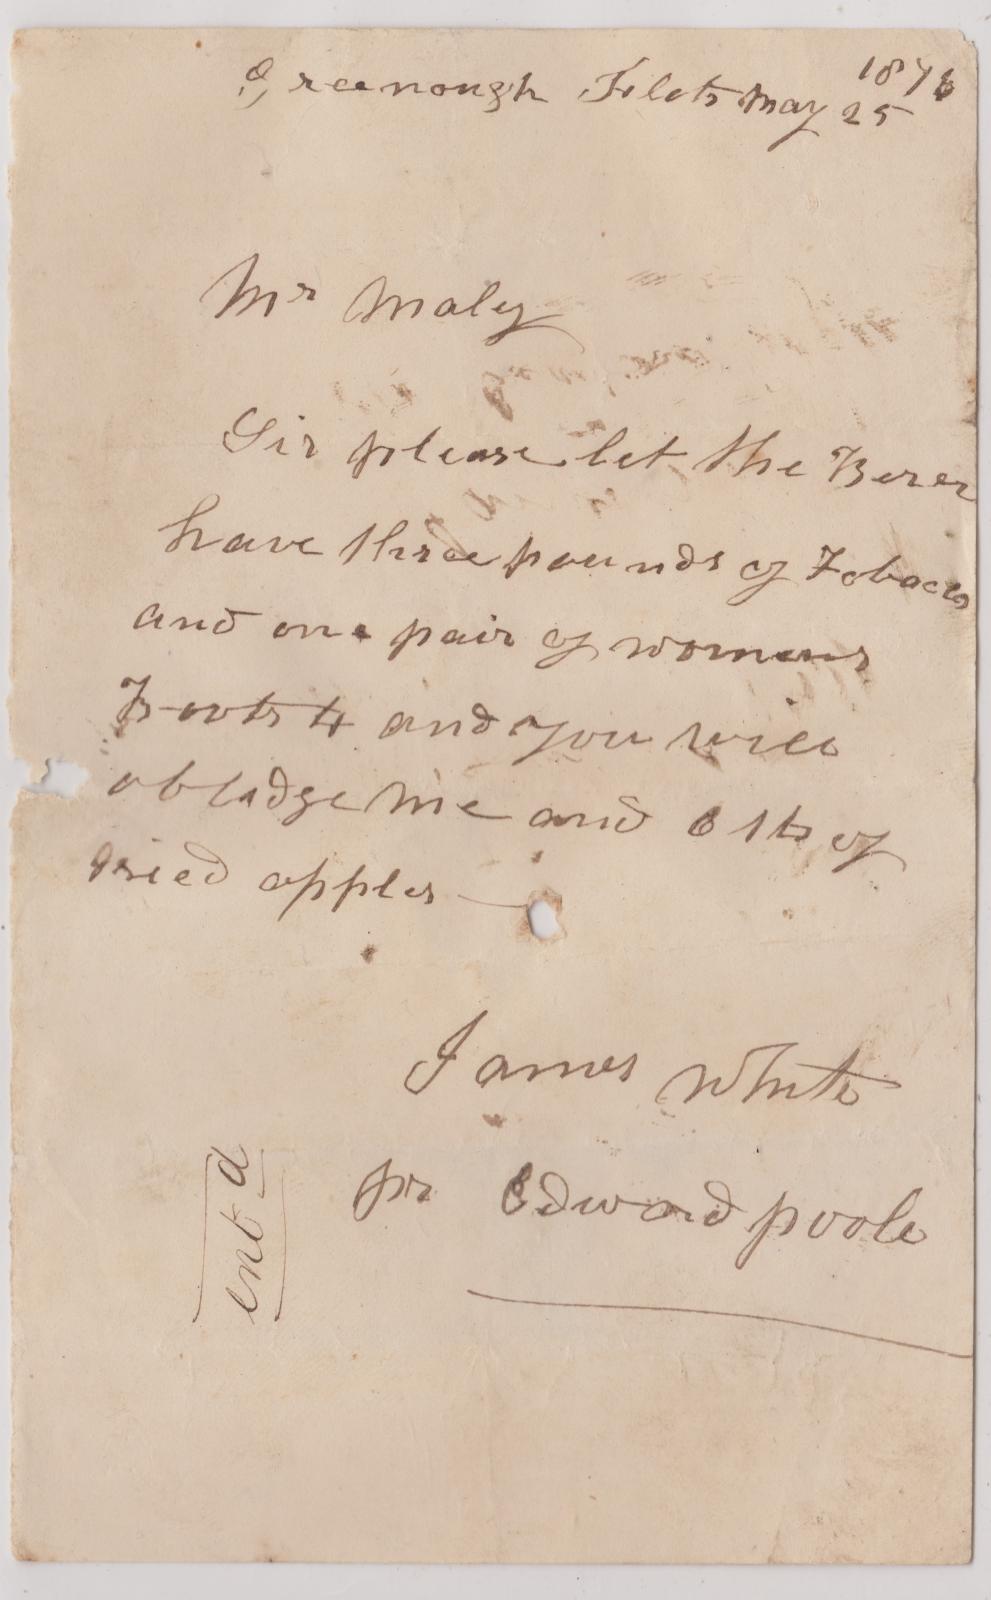 Greenough Flats May 25
1876
Mr Maley
Sir please let the Berer
have three pounds of Tobacco
and one pair of womens
Boots 4 and you will
obladge me and 6 lb of
dried apples
James White
pr Edward poole
entd